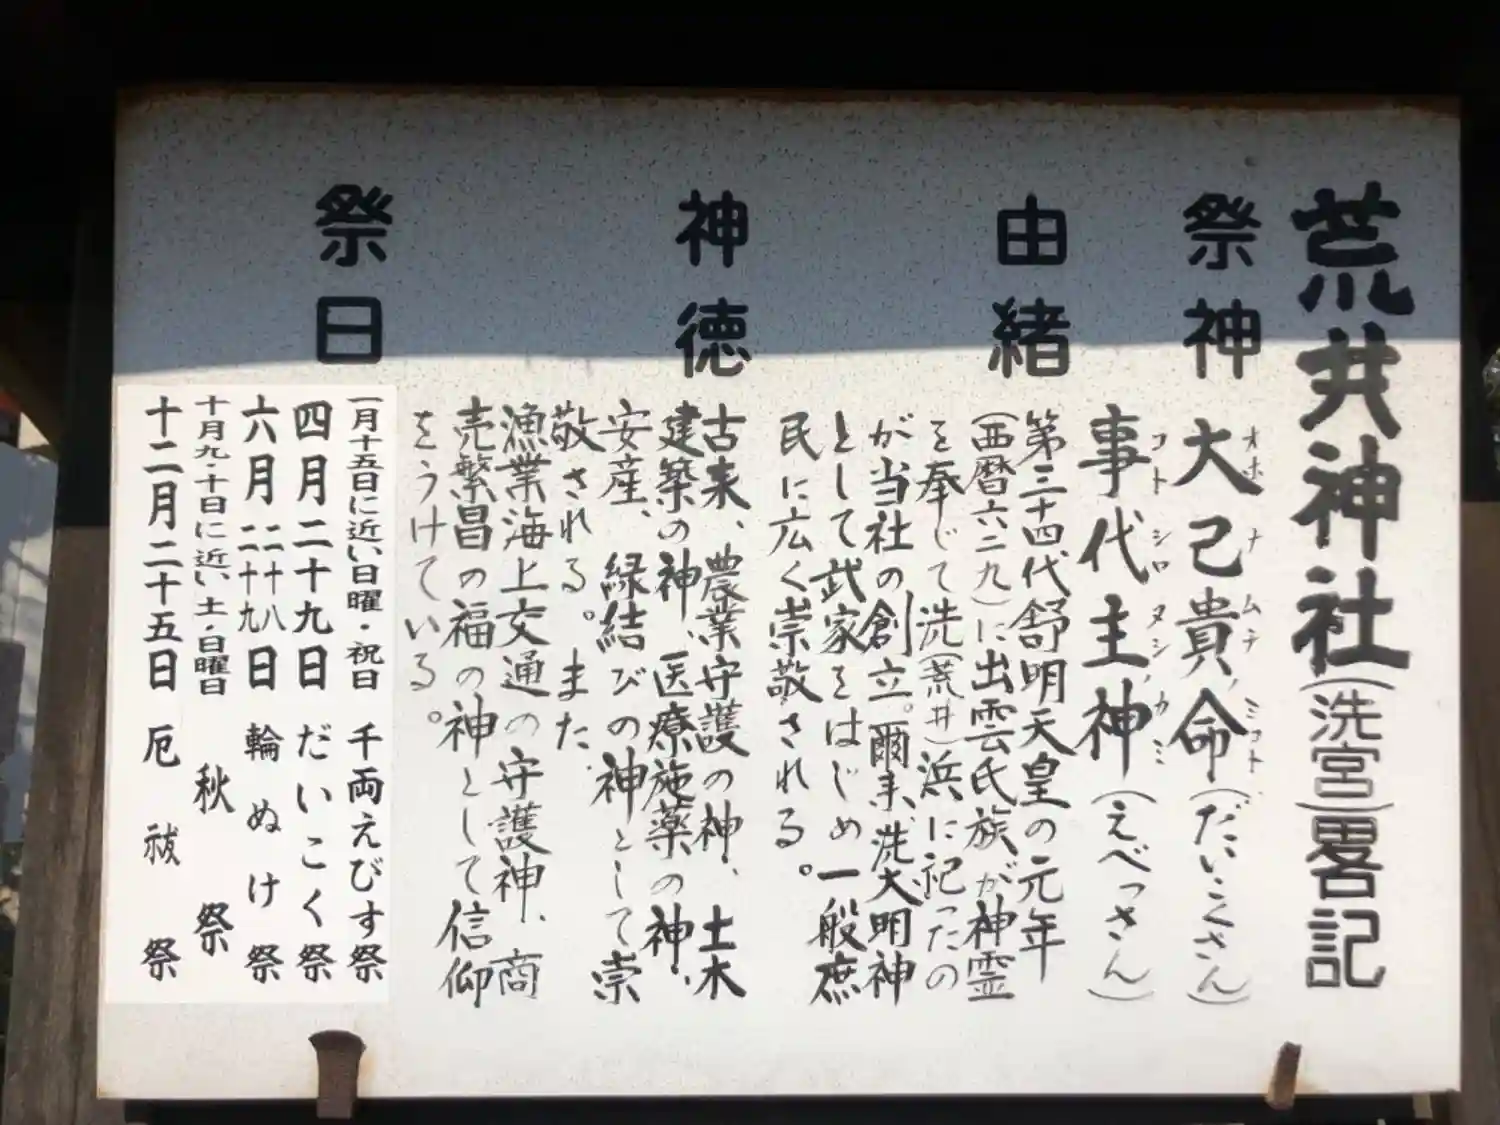 荒井神社(洗宮)畧記
祭神
大己貴命(だいこくさん)
オホナムチノミコト
事代主神(えべっさん)
コトシロヌシノカミ
由緒
第三十四代舒明天皇の元年
(西暦六二九)に出雲氏族が神霊
を奉じて洗(荒井)浜に祀ったの
が当社の創立。爾来、洗大明神
として武家をはじめ一般庶
民に広く崇敬される。
神徳
古来、農業守護の神、土木
建築の神、医療施薬の神、
安産、縁結びの神として崇
敬される。また
漁業海上交通の守護神、商
売繁昌の福の神として信仰
をうけている。
祭日
一月十五日に近い日曜・祝日 千両えびす祭
四月二十九日 だいこく祭
六月二十八二十九日 輪ぬけ祭
十月九・十日に近い、土・日曜日 秋祭
十二月二十五日 厄祓祭